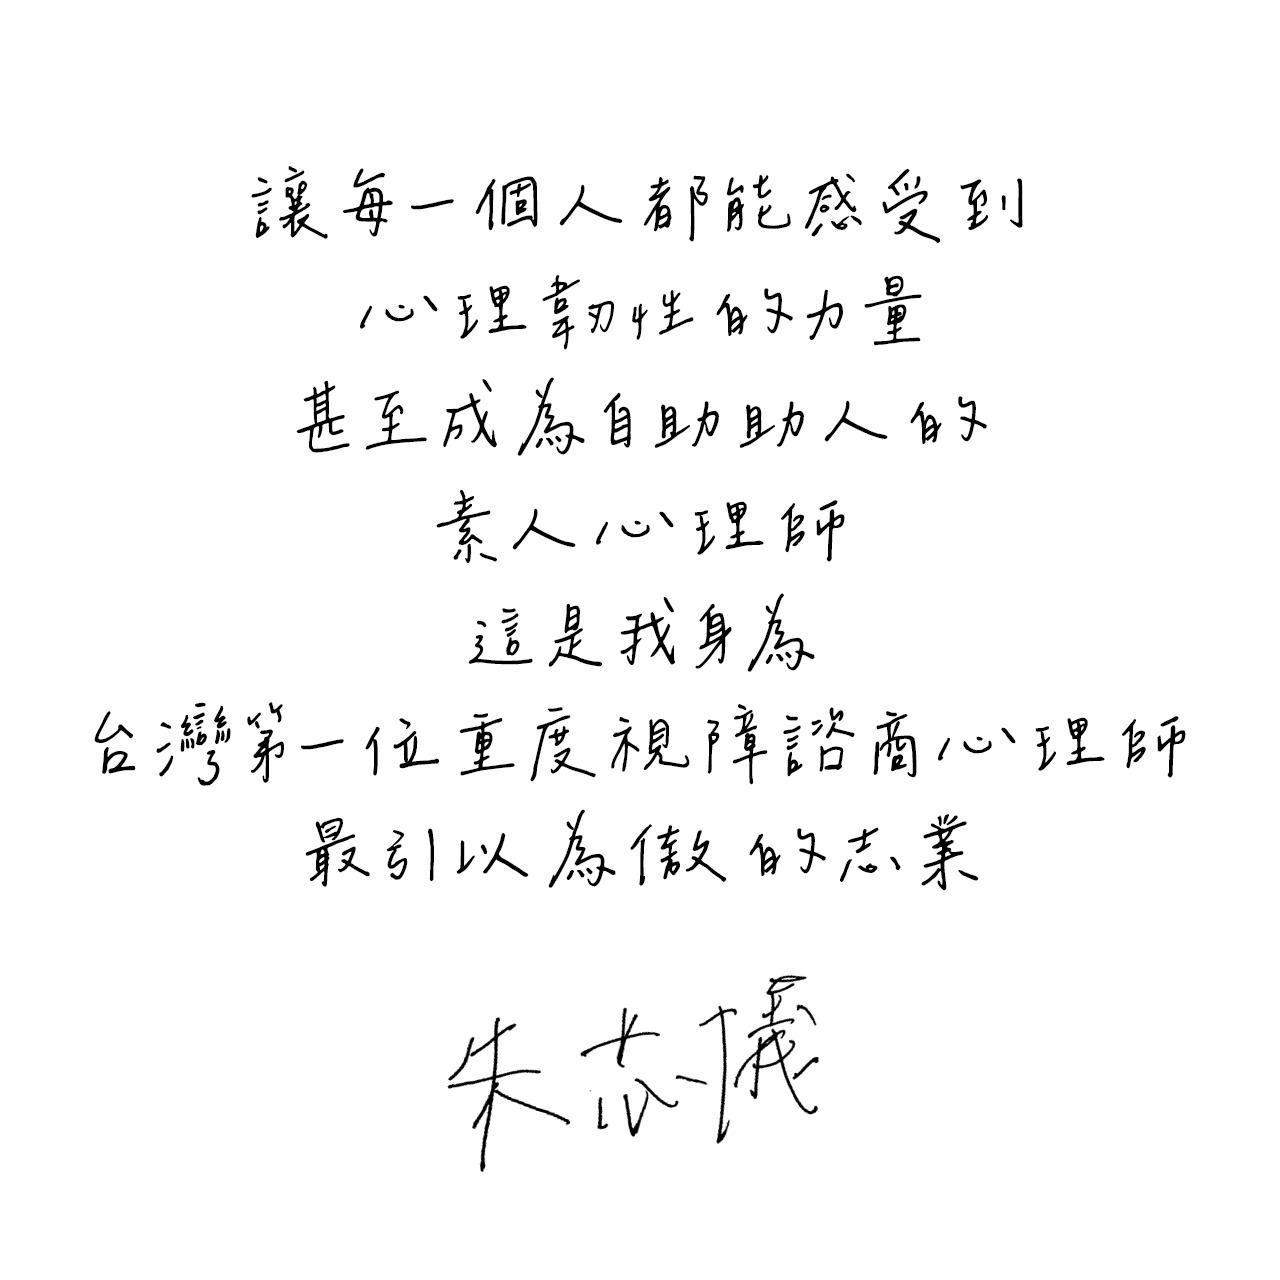 讓每一個人都能感受到
心理韌性的力量
甚至成為自助助人的
素人心理師
這是我身為
台灣第一位重度視障諮商心理師
最引以為傲的志業
朱志儀